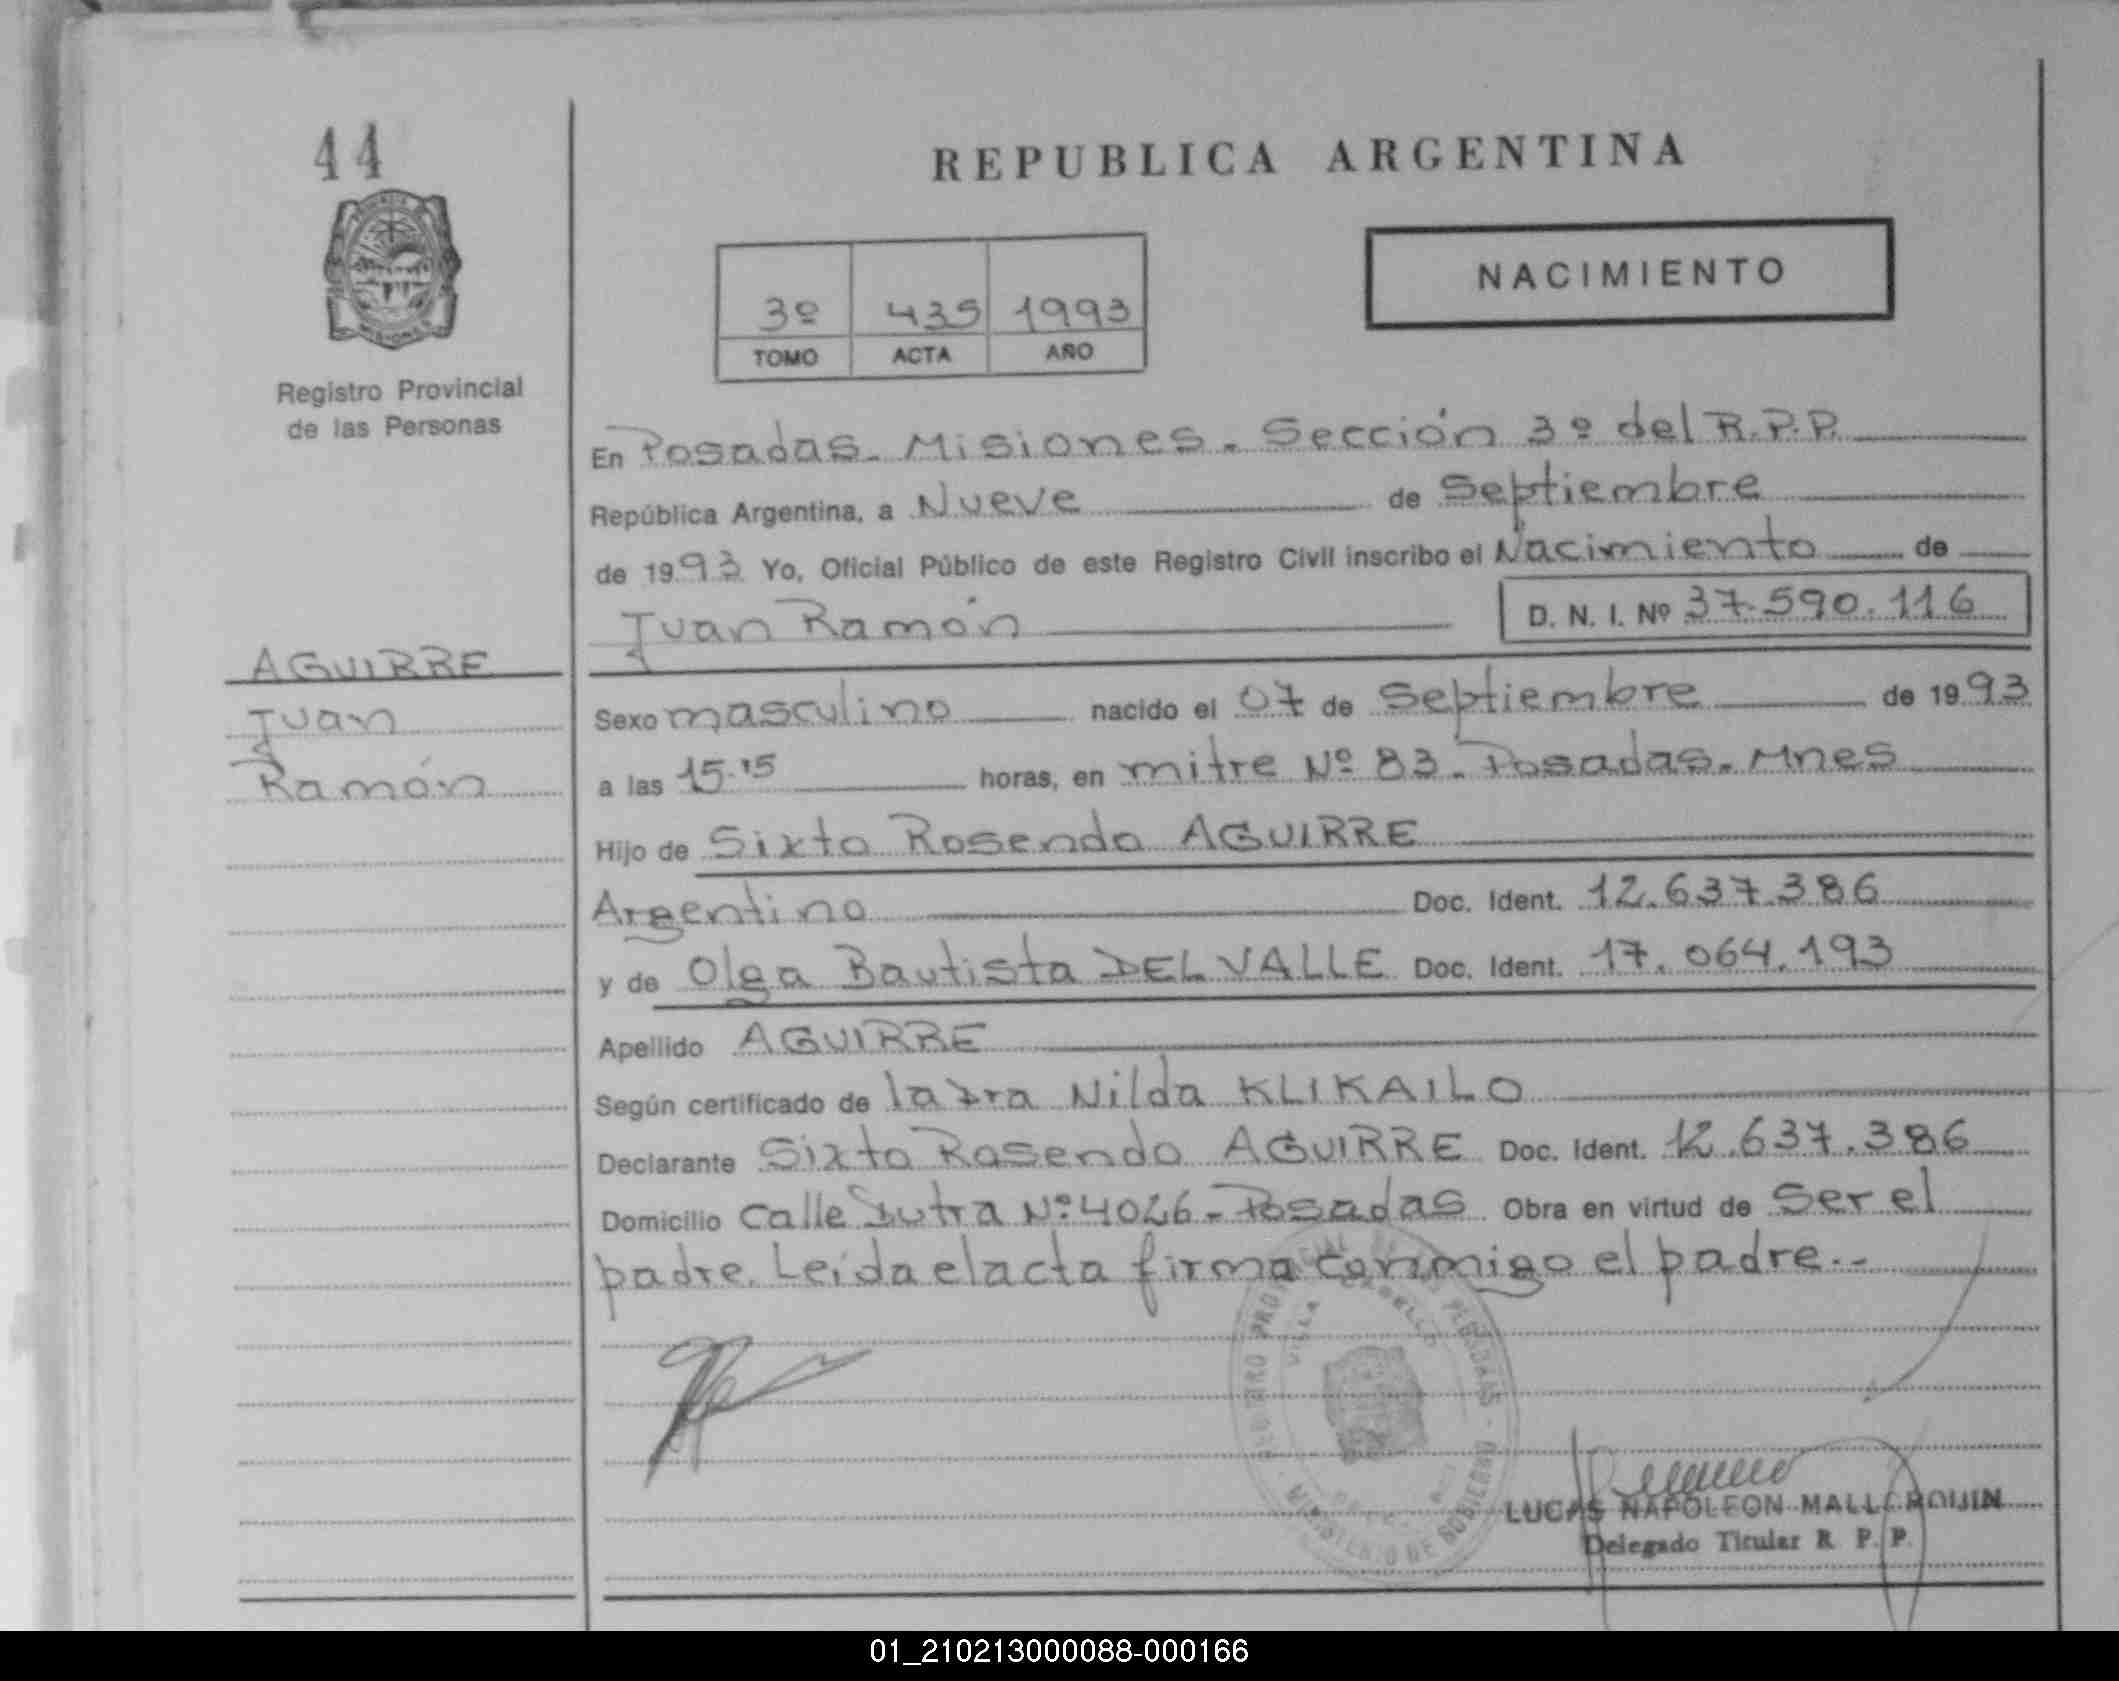 44
REPUBLICA ARGENTINA
NACIMIENTO
3º 435 1993
TOMO ACTA AÑO
Registro Provincial
de las Personas
En Posadas. Misiones. Sección 3º del R.P.P.
República Argentina, a Nueve de Septiembre
de 1993 Yo, Oficial Público de este Registro Civil inscribo el Nacimiento de
Juan Ramón D. N. I. Nº 37.590.116
AGUIRRE
Juan
Ramón
Sexo masculino nacido el 07 de Septiembre de 1993
a las 15.15 horas, en mitre Nº 83. Posadas. Mnes
Hijo de Sixto Rosendo AGUIRRE
Argentino Doc. Ident. 12.637.386
y de Olga Bautista DEL VALLE Doc. Ident. 17.064.193
Apellido AGUIRRE
Según certificado de la Dra Nilda KLIKAILO
Declarante Sixto Rosendo AGUIRRE Doc. Ident. 12.637.386
Domicilio Calle Dutra Nº 4026 - Posadas Obra en virtud de Ser el
padre. Leída el acta firma conmigo el padre.--
MINISTERIO DE GOBIERNO
LUCAS NAPOLEON
Delegado Titular R. P. P.
01_210213000088-000166